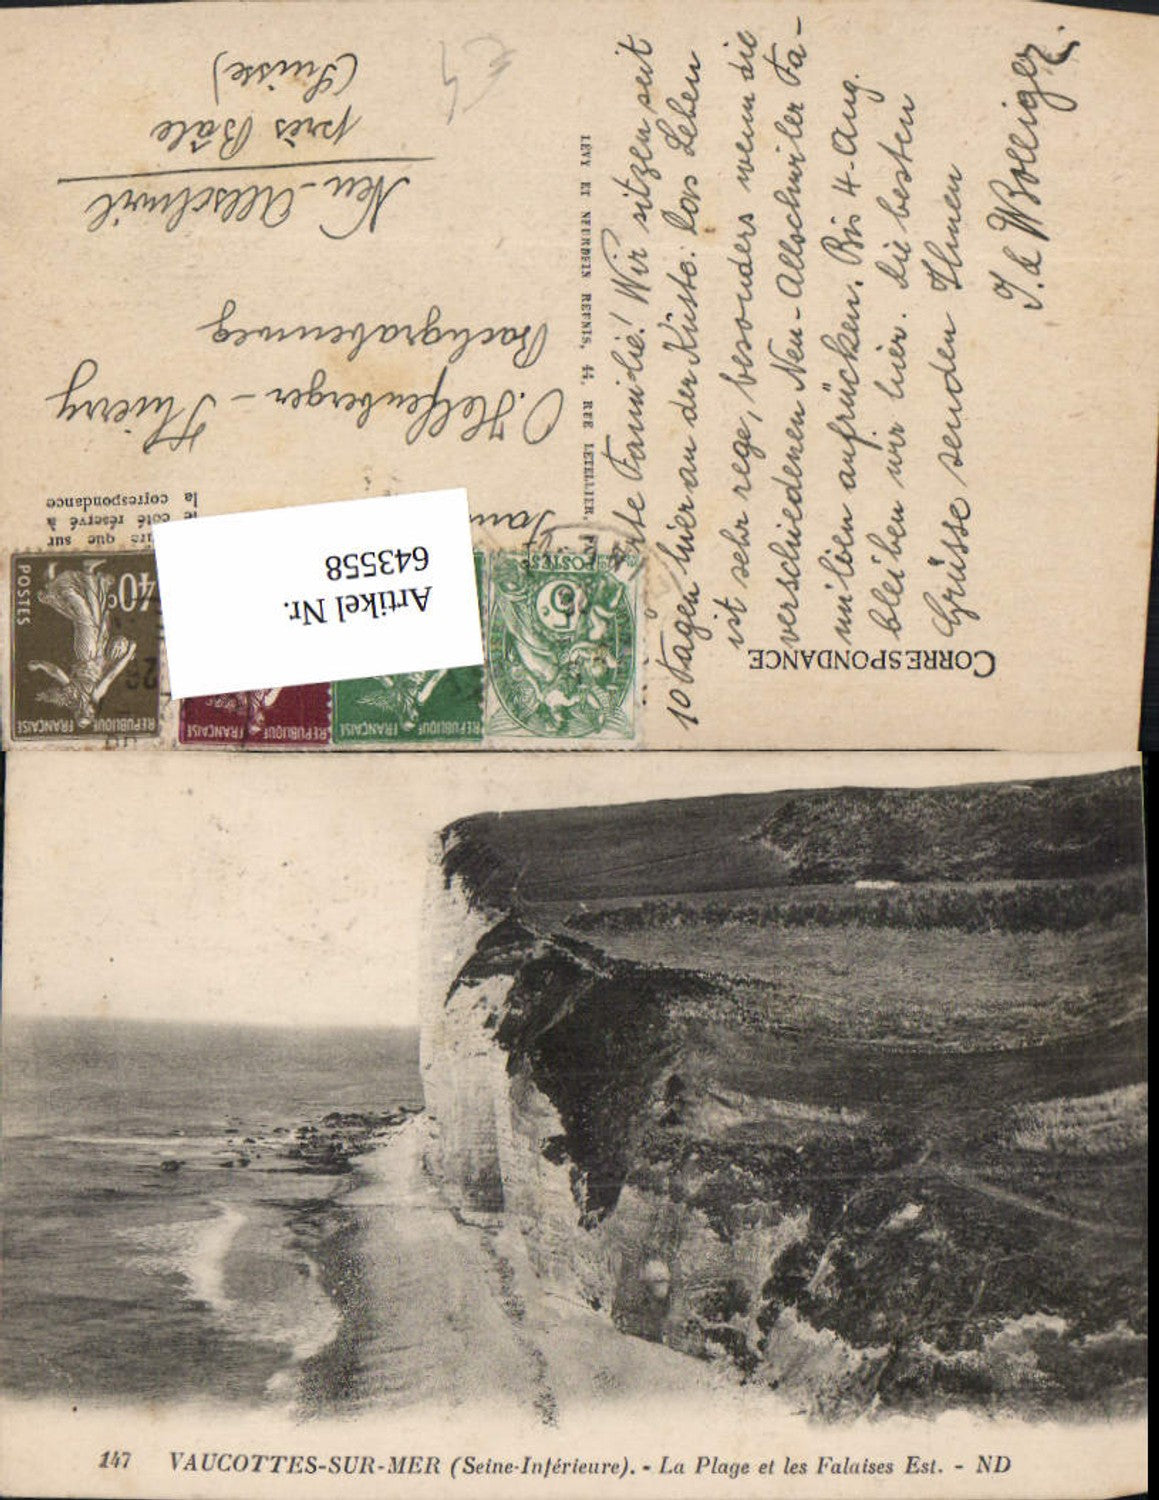 CORRESPONDANCE
Werte Familie! Wir sitzen seit
10 Tagen hier an der Küste. Das Leben
ist sehr rege, besonders wenn die
verschiedenen Neu-Allschwiler Fa-
milien aufrücken. Bis 4. Aug.
bleiben wir hier. Die besten
Grüsse senden Ihnen
J. & W Bolliger.
LÉVY ET NEURDEIN RÉUNIS, 44, RUE LETELLIER,
que sur
le côté réservé à
la correspondance
Fam
O. Helfenberger - Thierry
Bachgrabenweg
Neu-Allschwil
près Bâle
(Suisse)
Artikel Nr.
643558
POSTES
40c
REPUBLIQUE FRANÇAISE
REPUBLIQUE FRANÇAISE
REPUBLIQUE FRANÇAISE
5
POSTES
147 VAUCOTTES-SUR-MER (Seine-Inférieure). - La Plage et les Falaises Est. - ND